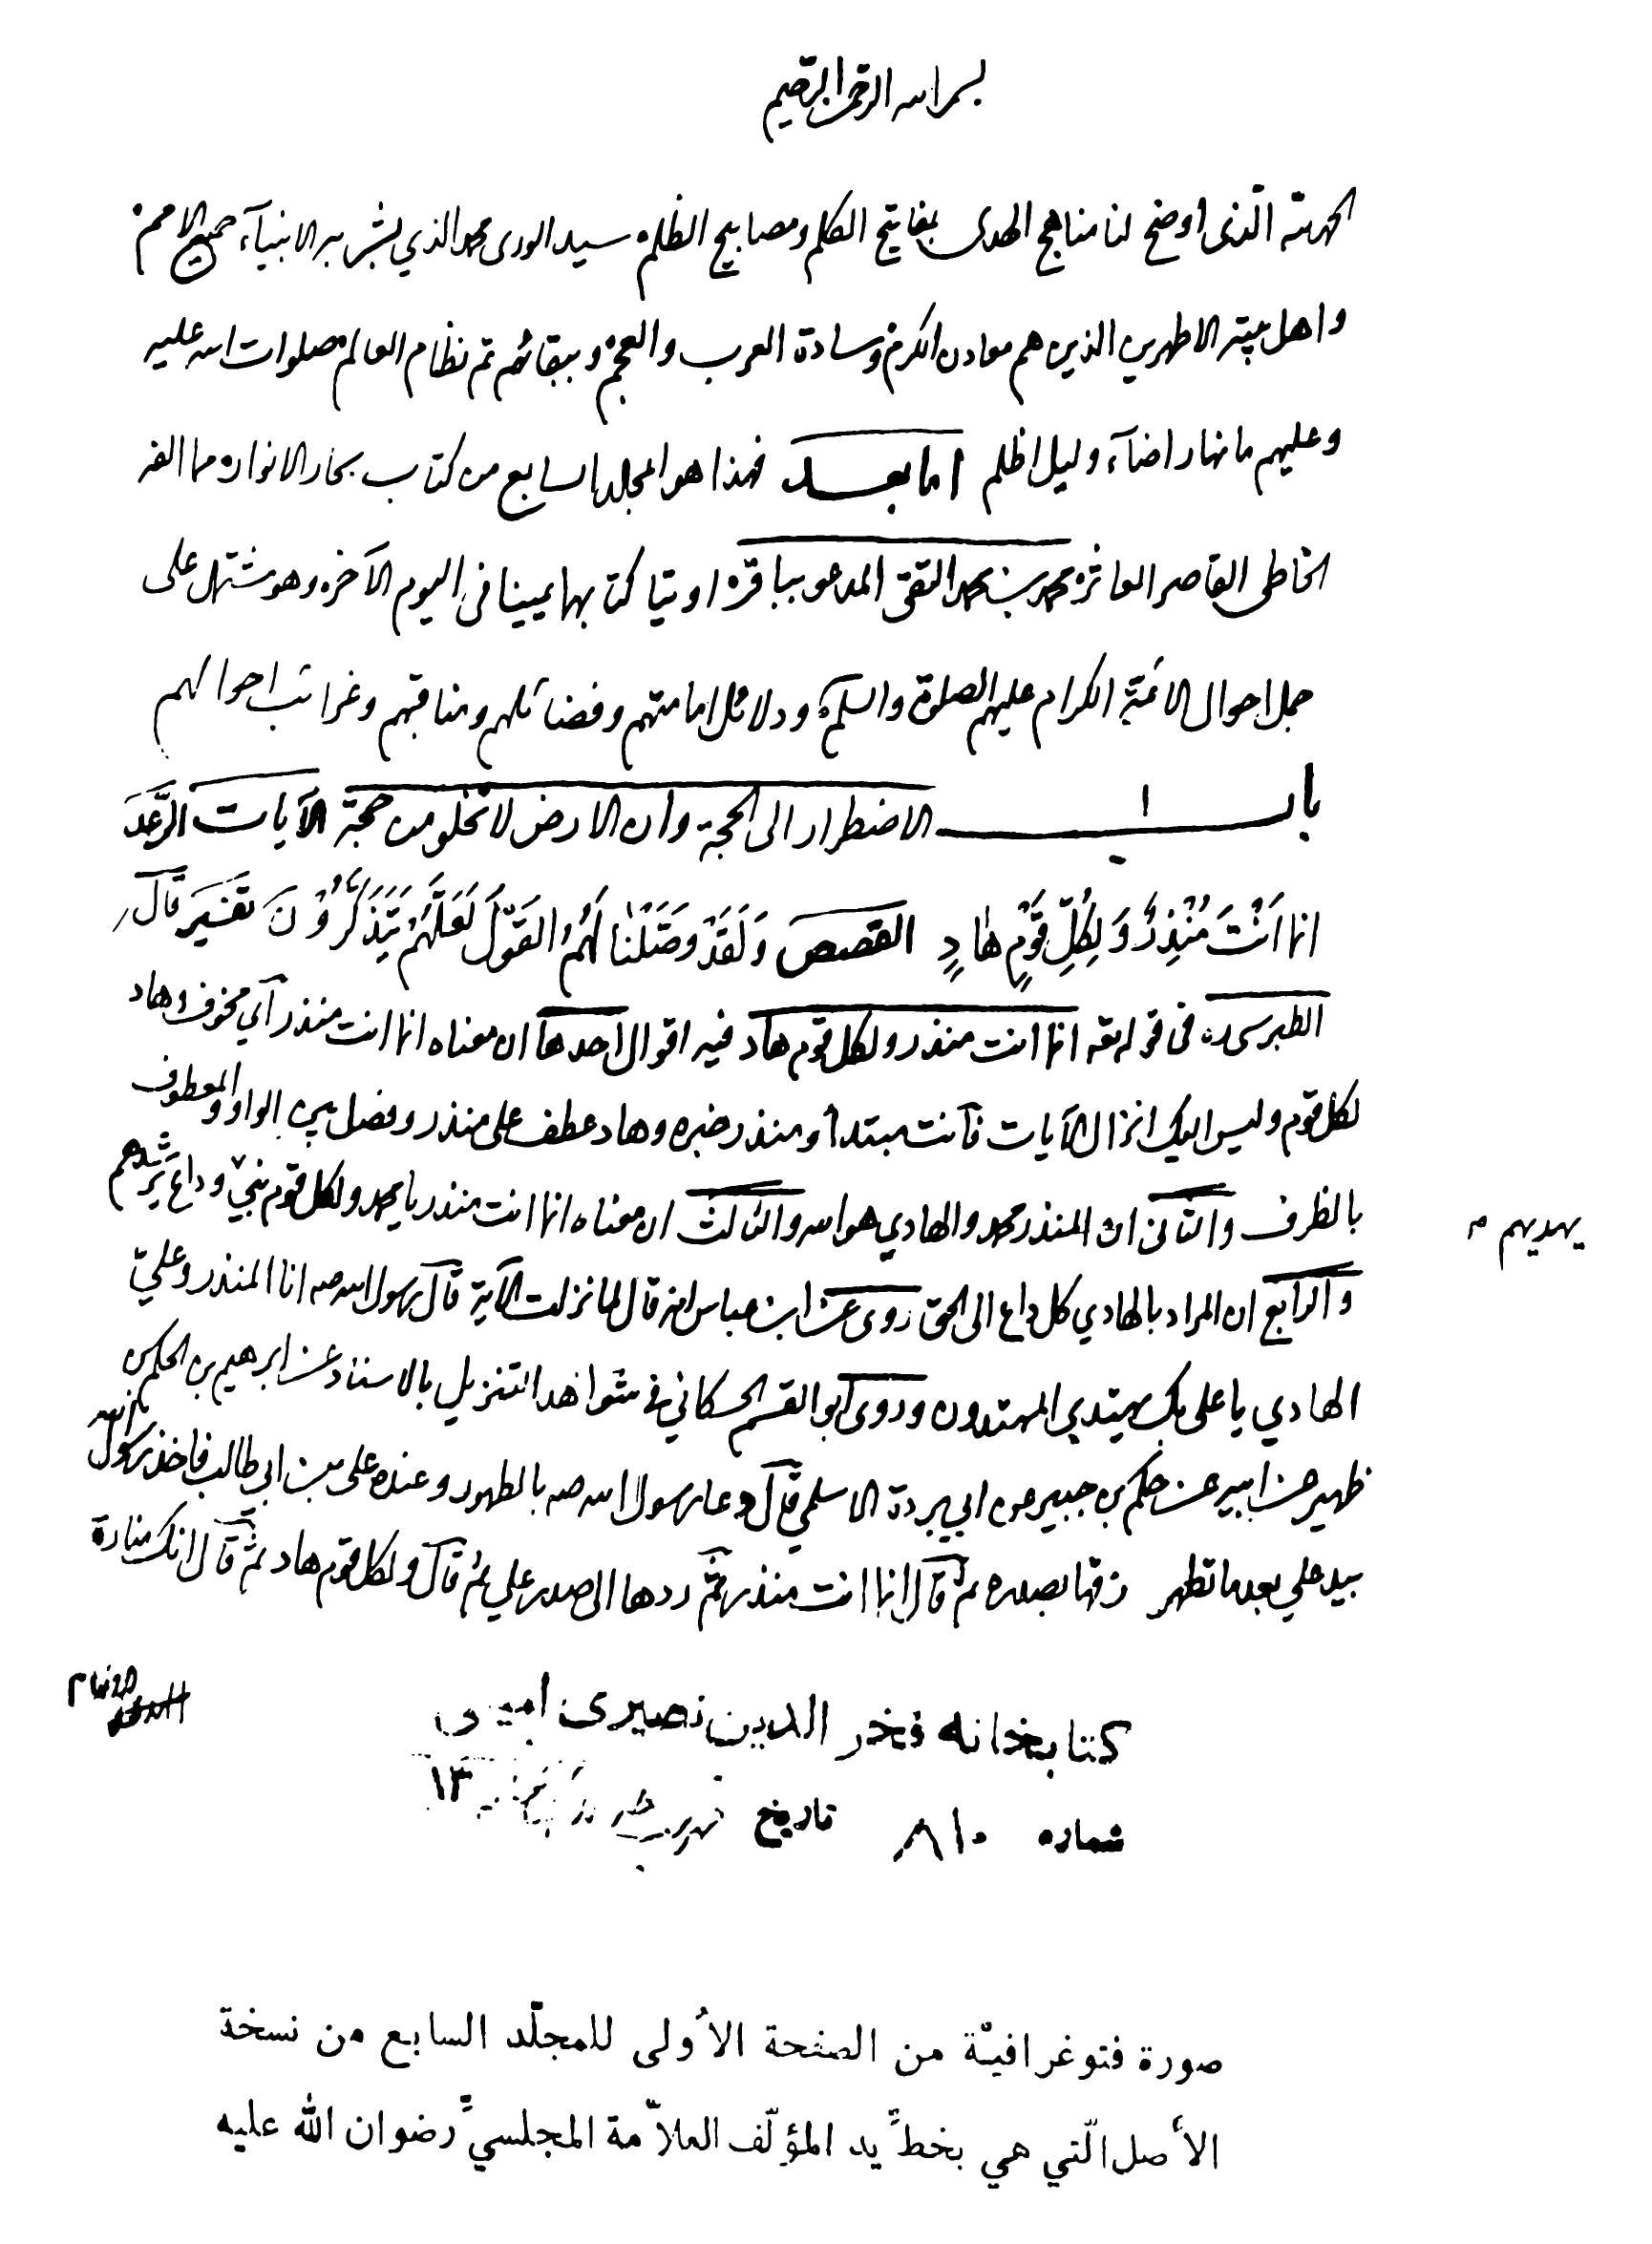 بسم الله الرحمن الرحيم
الحمد لله الذى اوضح لنا مناهج الهدى بمفاتيح الكلم ومصابيح الظلم سيد الورى محمد الذي بشر به الانبيآء جميع الامم
واهل بيته الاطهرين الذين هم معادن الكرم وسادة العرب والعجم وببقائهم تم نظام العالم صلوات الله عليه
وعليهم ما نهار اضآء وليل اظلم اما بعد فهذا هو المجلد السابع من كتاب بحار الانوار مما الفه
الخاطى القاصر العاثر محمد بن محمد التقى المدعو بباقر اوتيا كتابهما يمينا فى اليوم الآخر وهو مشتمل على
جمل احوال الائمة الكرام عليهم الصلوة والسلم ودلائل امامتهم وفضائلهم ومناقبهم وغرائب احوالهم
باب ١ الاضطرار الى الحجة وان الارض لا تخلو من حجة الآيات الرَّعد
انما اَنْتَ مُنْذِرٌ وَ لِكُلِّ قَوْمٍ هٰادٍ القصص وَ لَقَدْ وَصَّلْنٰا لَهُمُ الْقَوْلَ لَعَلَّهُمْ يَتَذَكَّرُوْنَ تفسير قال
الطبرسى ره فى قوله تعه انما انت منذر ولكل قوم هاد فيه اقوال احدها ان معناه انما انت منذر اي مخوف وهاد
لكل قوم وليس اليك انزال الآيات فانت مبتدأ ومنذر خبره وهاد عطف على منذر وفصل بين الواو والمعطوف
بالظرف والثانى ان المنذر محمد والهادي هو الله والثالث ان معناه انما انت منذر يا محمد ولكل قوم نبيّ وداع يرشدهم
يهديهم م
والرابع ان المراد بالهادي كل داع الى الحق روى عن ابن عباس انه قال لما نزلت الآية قال رسول الله صه انا المنذر وعليّ
الهادي يا على بك يهتدي المهتدون وروى ابو القسم الحسكاني في شواهد التنزيل بالاسناد عن ابرهيم بن الحكم بن
ظهير عن ابيه عن حكم بن جبير عن ابي بردة الاسلمي قال دعا رسول الله صه بالطهور وعنده على بن ابي طالب فاخذ رسول الله
بيد علي بعد ما تطهر فالزقها بصدره ثم قال انما انت منذر ثم ردها الى صدر علي ثم قال ولكل قوم هاد ثم قال انك منارة
كتابخانه فخر الدين نصيرى امينى
شماره ٨١٠ تاريخ ١٣
صورة فتوغرافيّة من الصفحة الأولى للمجلّد السابع من نسخة
الأصل الّتي هي بخطّ يد المؤلّف العلاّمة المجلسيّ رضوان الله عليه